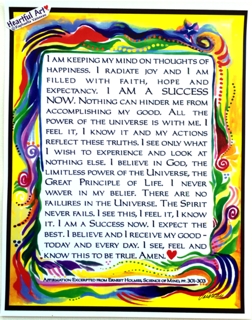 Heartful Art
I am keeping my mind on thoughts of
happiness. I radiate joy and I am
filled with faith, hope and
expectancy. I AM A SUCCESS
NOW. Nothing can hinder me from
accomplishing my good. All the
power of the universe is with me. I
feel it, I know it and my actions
reflect these truths. I see only what
I wish to experience and look at
nothing else. I believe in God, the
limitless power of the Universe, the
Great Principle of Life. I never
waver in my belief. There are no
failures in the Universe. The Spirit
never fails. I see this, I feel it, I know
it. I am a Success now. I expect the
best. I believe and I receive my good -
today and every day. I see, feel and
know this to be true. Amen.
Affirmation Excerpted from Ernest Holmes, Science of Mind, pp. 301-303